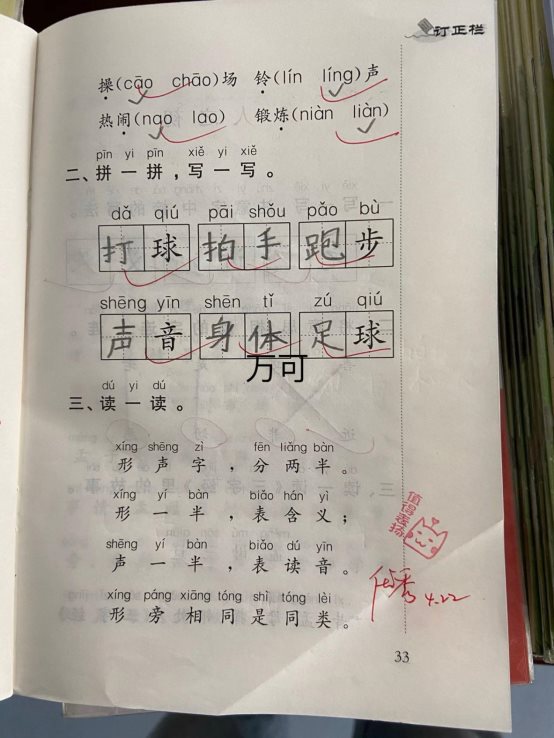 订正栏
操(cāo chāo)场 铃(lín líng)声
热闹(nao lao) 锻炼(niàn liàn)
pīn yi pīn xiě yi xiě
二、拼一拼，写一写。
dǎ qiú pāi shǒu pǎo bù
打球 拍手 跑步
shēng yīn shēn tǐ zú qiú
声音 身体 足球
万可
dú yi dú
三、读一读。
xíng shēng zì fēn liǎng bàn
形声字，分两半。
xíng yí bàn biǎo hán yì
形一半，表含义；
shēng yí bàn biǎo dú yīn
声一半，表读音。
xíng páng xiāng tóng shì tóng lèi
形旁相同是同类。
值得表扬
4.22
33